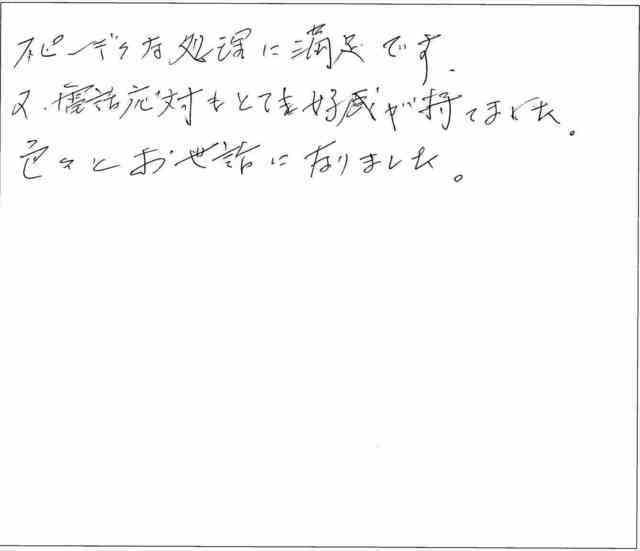 スピーディな処理に満足です。
又、電話応対もとても好感が持てました。
色々とお世話になりました。